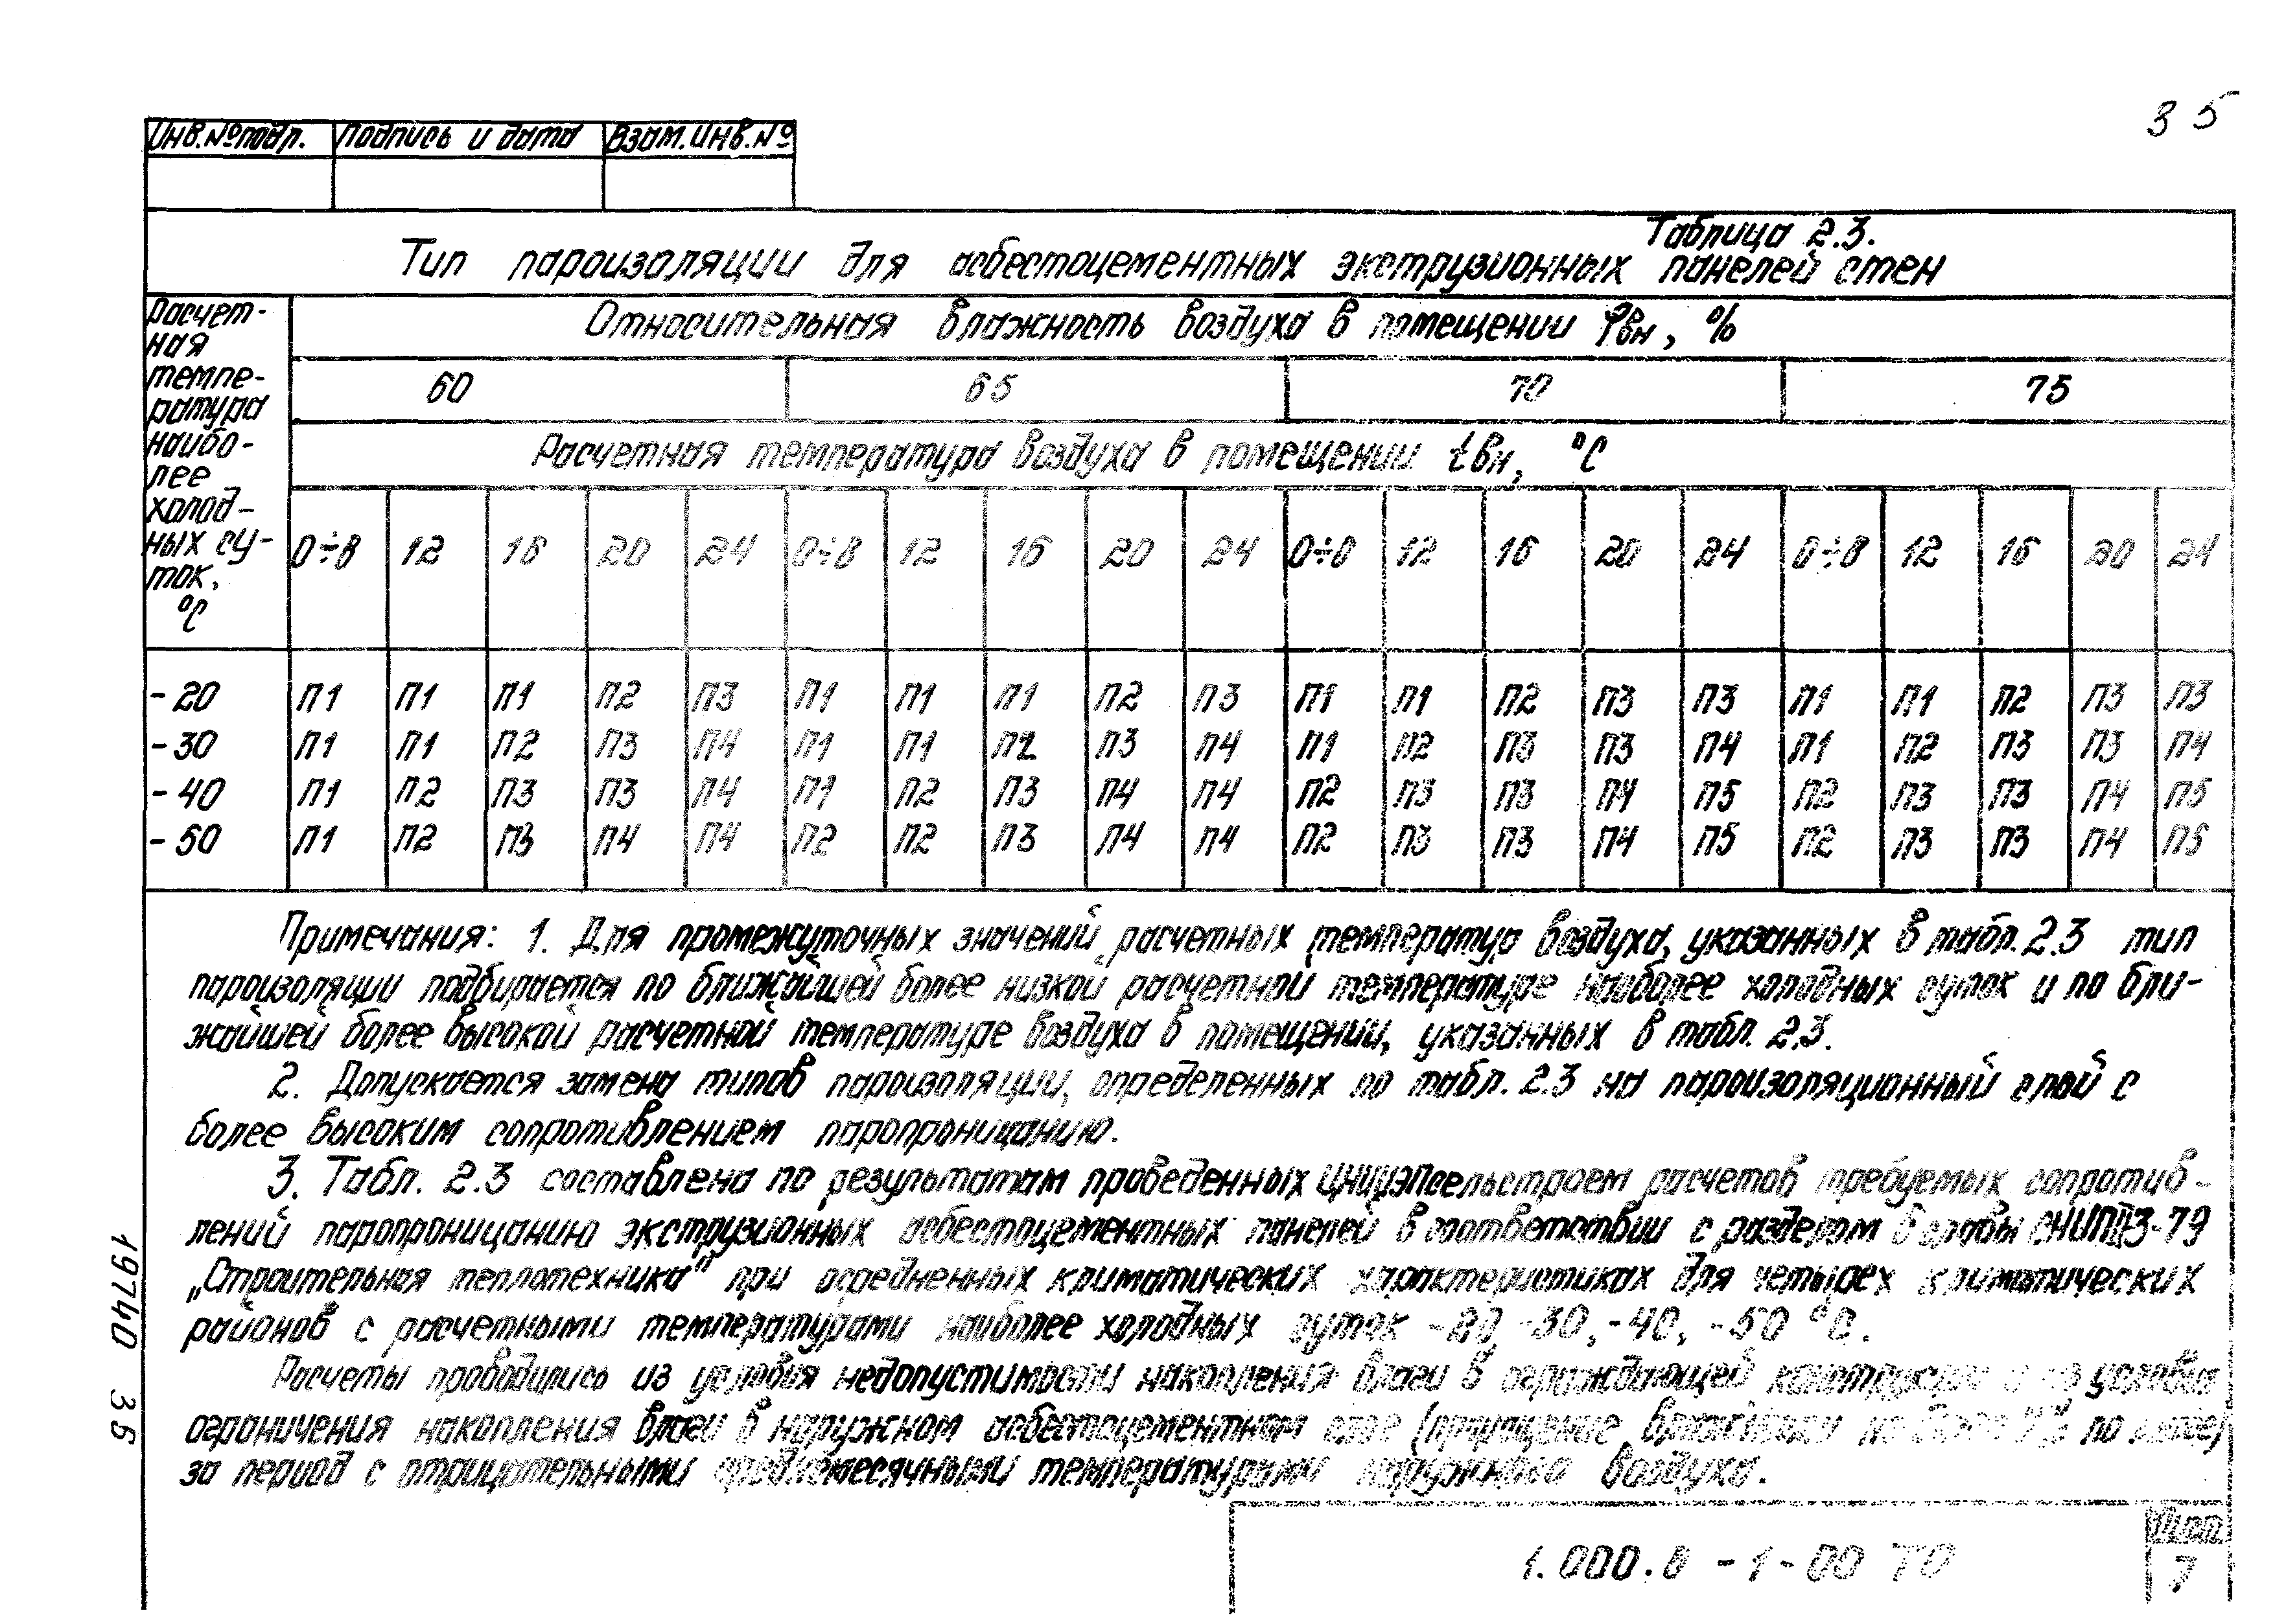 35
Инв.№подл. Подпись и дата Взам.инв.№
Таблица 2.3.
Тип пароизоляции для асбестоцементных экструзионных панелей стен
Расчет-
ная
темпе-
ратура
наибо-
лее
холод-
ных су-
ток,
°С
Относительная влажность воздуха в помещении φвн, %
60 65 70 75
Расчетная температура воздуха в помещении tвн, °С
0÷8 12 16 20 24 0÷8 12 16 20 24 0÷8 12 16 20 24 0÷8 12 16 20 24
-20 П1 П1 П1 П2 П3 П1 П1 П1 П2 П3 П1 П1 П2 П3 П3 П1 П1 П2 П3 П3
-30 П1 П1 П2 П3 П4 П1 П1 П2 П3 П4 П1 П2 П3 П3 П4 П1 П2 П3 П3 П4
-40 П1 П2 П3 П3 П4 П1 П2 П3 П4 П4 П2 П3 П3 П4 П5 П2 П3 П3 П4 П5
-50 П1 П2 П3 П4 П4 П2 П2 П3 П4 П4 П2 П3 П3 П4 П5 П2 П3 П3 П4 П5
Примечания: 1. Для промежуточных значений расчетных температур воздуха, указанных в табл. 2.3 тип
пароизоляции подбирается по ближайшей более низкой расчетной температуре наиболее холодных суток и по бли-
жайшей более высокой расчетной температуре воздуха в помещении, указанных в табл. 2.3.
2. Допускается замена типов пароизоляции, определенных по табл. 2.3 на пароизоляционный слой с
более высоким сопротивлением паропроницанию.
3. Табл. 2.3 составлена по результатам проведенных ЦНИИЭПсельстроем расчетов требуемых сопротив-
лений паропроницанию экструзионных асбестоцементных панелей в соответствии с разделом 6 главы СНиП II-3-79
„Строительная теплотехника" при осредненных климатических характеристиках для четырех климатических
районов с расчетными температурами наиболее холодных суток -20, -30, -40, -50 °С.
Расчеты проводились из условия недопустимости накопления влаги в ограждающей конструкции и из условия
ограничения накопления влаги в наружном асбестоцементном слое (приращение влажности не более по массе)
за период с отрицательными среднемесячными температурами наружного воздуха.
1.000.8-1-00 ТО
Лист
7
19740 36